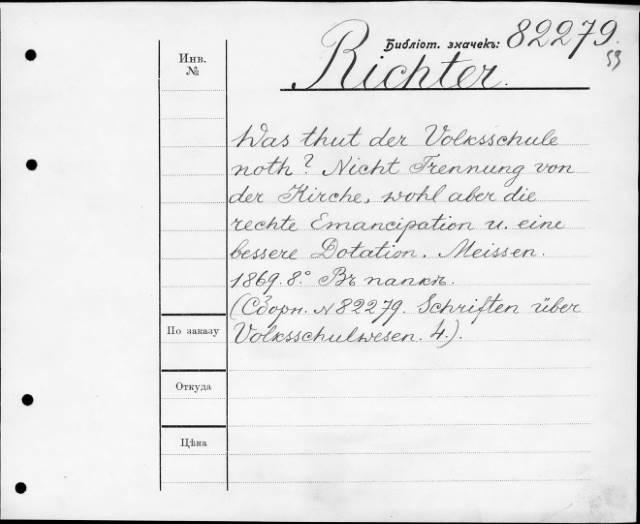 Библіот. значекъ: 82279.
53
Инв.
№
Richter.
Was thut der Volksschule
noth? Nicht Trennung von
der Kirche, wohl aber die
rechte Emancipation u. eine
bessere Dotation. Meissen.
1869. 8.° Въ папкѣ.
(Сборн. N 82279. Schriften über
По заказу
Volksschulwesen. 4.).
Откуда
Цѣна